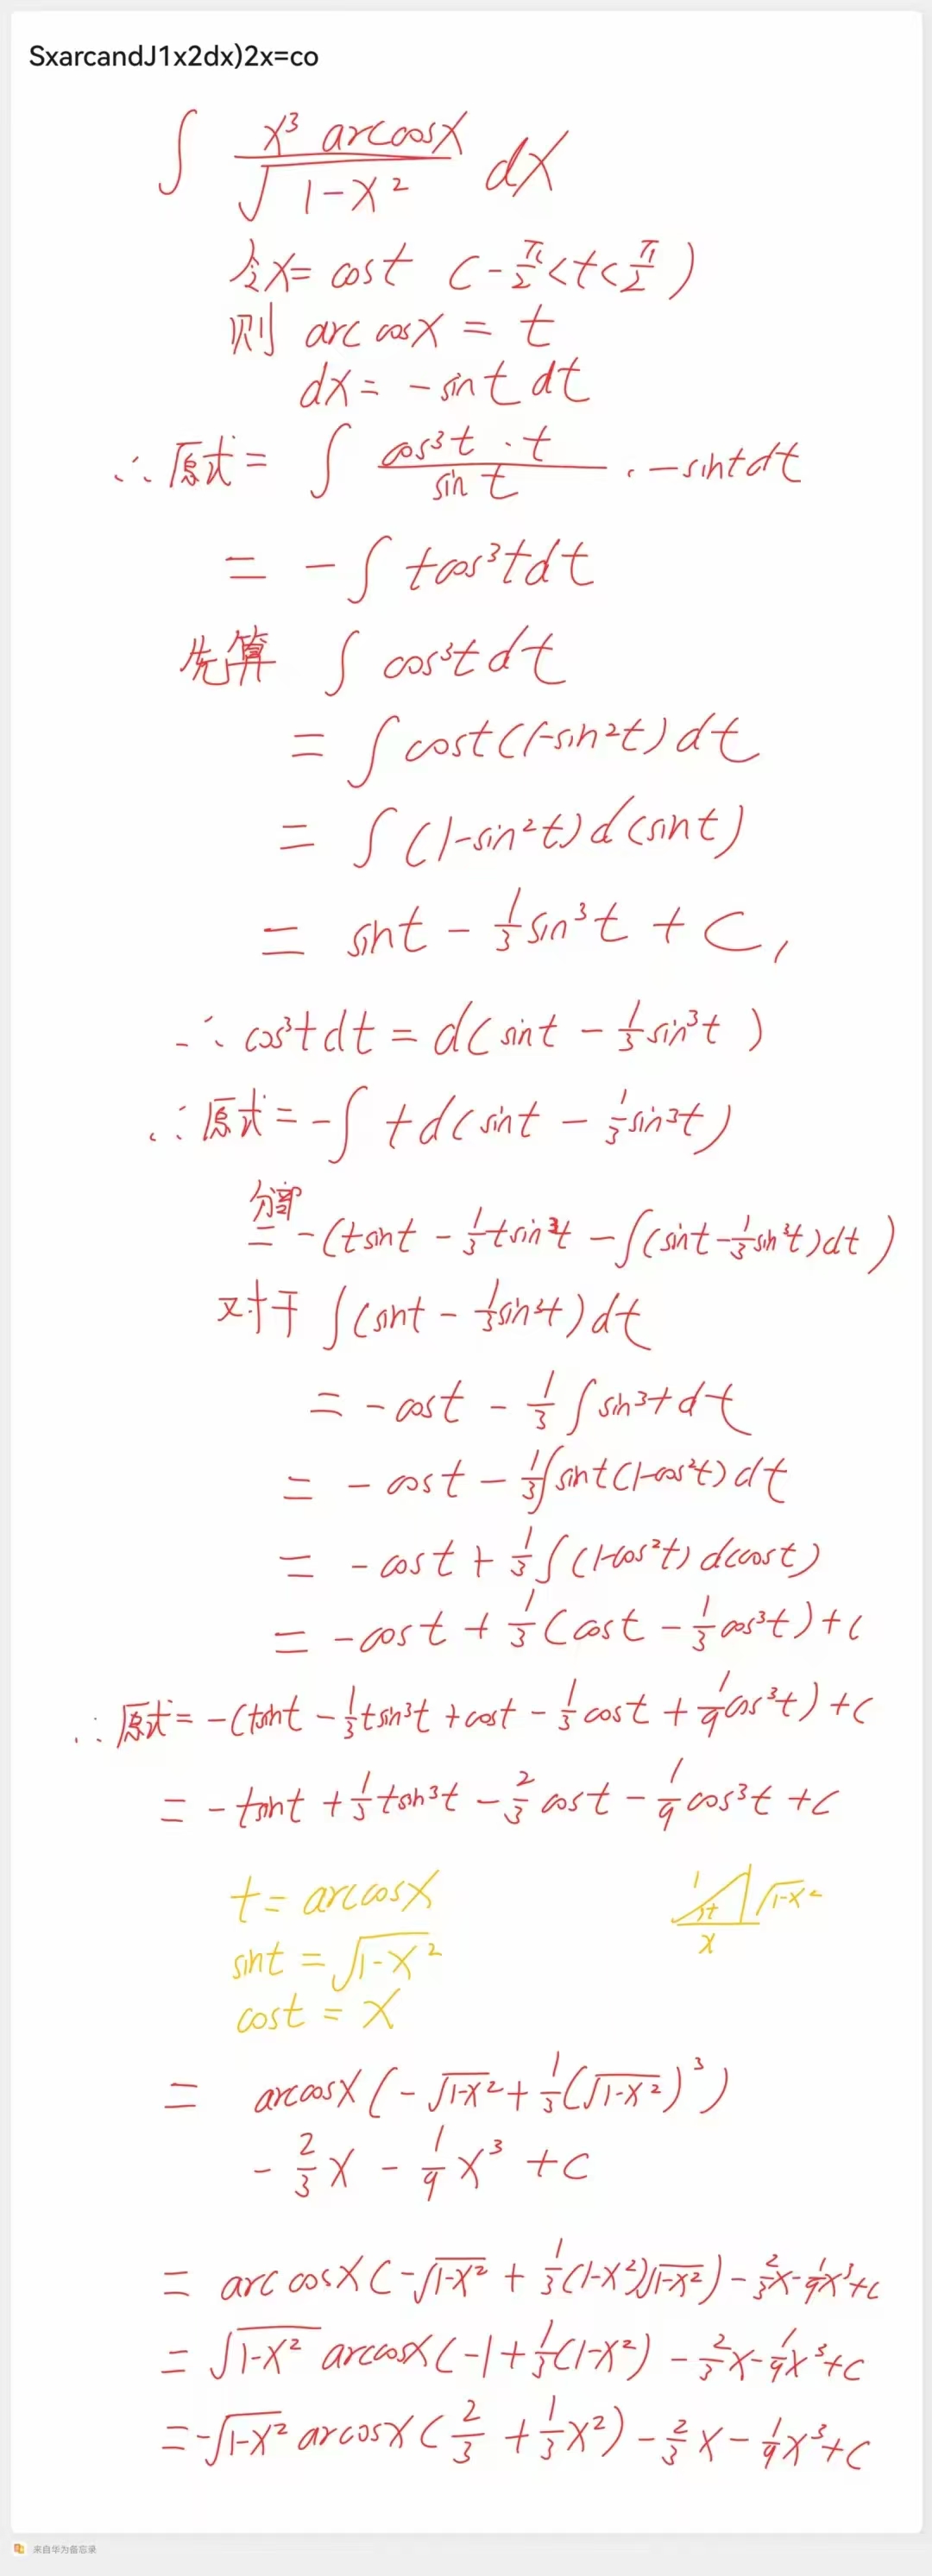 SxarcandJ1x2dx)2x=co
∫ x³ arccosx / √(1-x²) dx
令x= cost (-π/2<t<π/2)
则 arccosx = t
dx = -sint dt
∴原式= ∫ cos³t·t / sint · -sintdt
= -∫ tcos³tdt
先算 ∫ cos³tdt
= ∫ cost(1-sin²t)dt
= ∫ (1-sin²t)d(sint)
= sint - 1/3 sin³t + C,
∴ cos³tdt = d(sint - 1/3 sin³t)
∴原式= -∫ td(sint - 1/3 sin³t)
分部
= -(tsint - 1/3 tsin³t - ∫(sint - 1/3 sin³t)dt)
对于 ∫(sint - 1/3 sin³t)dt
= -cost - 1/3 ∫ sin³tdt
= -cost - 1/3 ∫ sint(1-cos²t)dt
= -cost + 1/3 ∫ (1-cos²t)d(cost)
= -cost + 1/3 (cost - 1/3 cos³t) + C
∴原式= -(tsint - 1/3 tsin³t + cost - 1/3 cost + 1/9 cos³t) + C
= -tsint + 1/3 tsin³t - 2/3 cost - 1/9 cos³t + C
t = arccosx
1 t √(1-x²)
x
sint = √(1-x²)
cost = x
= arccosx (-√(1-x²) + 1/3 (√(1-x²))³)
- 2/3 x - 1/9 x³ + C
= arccosx (-√(1-x²) + 1/3 (1-x²)√(1-x²)) - 2/3 x - 1/9 x³ + C
= √(1-x²) arccosx (-1 + 1/3 (1-x²) - 2/3 x - 1/9 x³ + C
= -√(1-x²) arccosx (2/3 + 1/3 x²) - 2/3 x - 1/9 x³ + C
来自华为备忘录